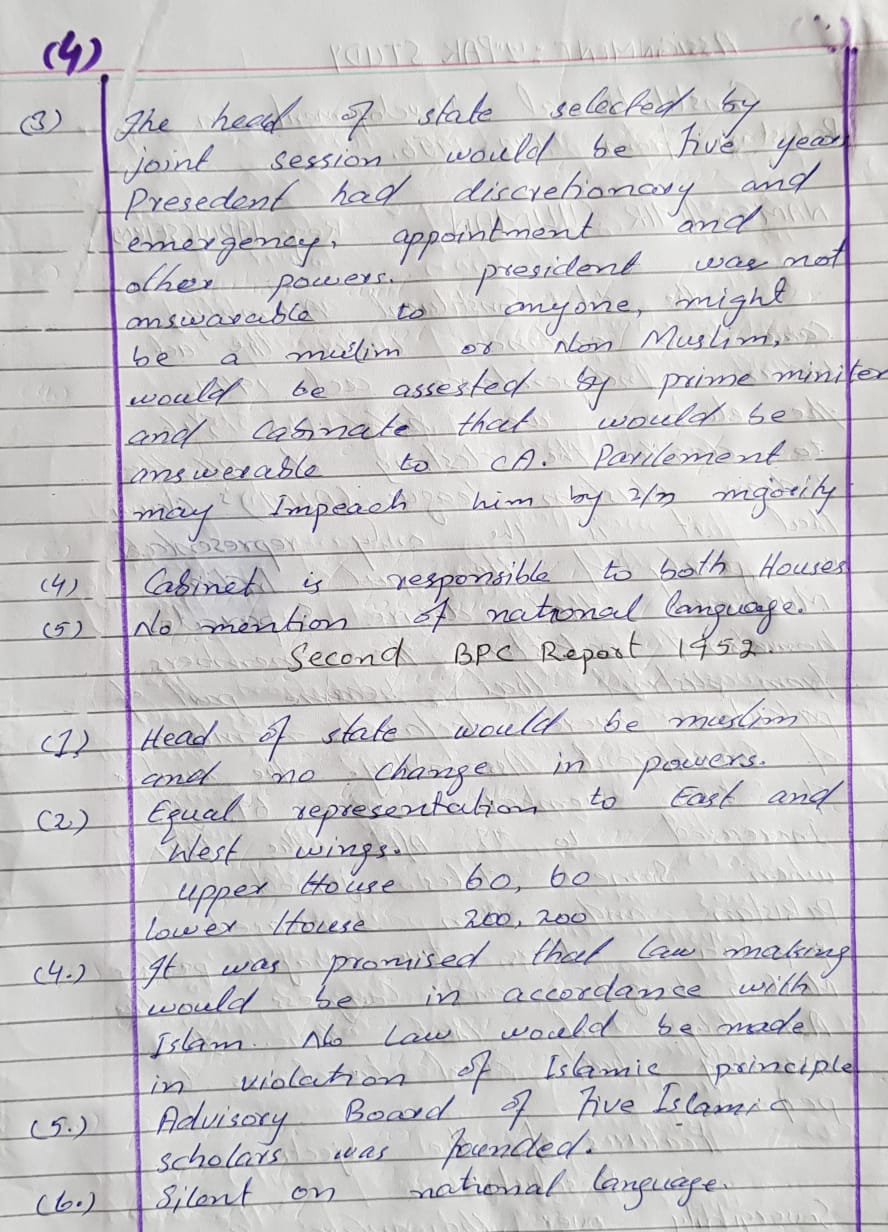 (4)
(3) The head of state selected by
joint session would be Five years
Presedent had discretionary and
emergency, appointment and
other powers. president was not
answarable to anyone, might
be a muslim or Non Muslim,
would be assested by prime miniter
and Cabinate that would be
answerable to CA. Parilement
may Impeach him by majority
(4) Cabinet is responsible to both Houses
(5) No mention of national language.
Second BPC Report 1952.
(1) Head of state would be muslim
and no change in powers.
(2) Equal representation to East and
West wings.
Upper House 60, 60
Lower House 200, 200
(4.) It was promised that law making
would be in accordance with
Islam. No Law would be made
in violation of Islamic principle
(5.) Advisory Board of Five Islamic
scholars was founded.
(6.) Silent on national language.